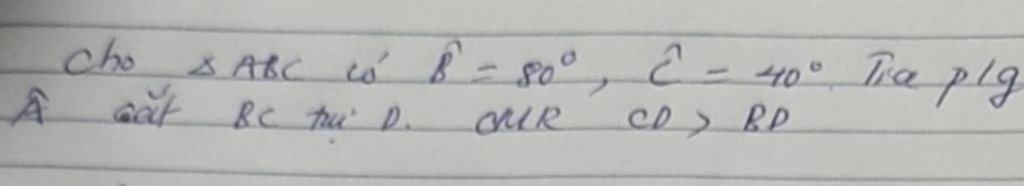 Cho △ ABC có B̂ = 80°, Ĉ = 40°. Tia p/g
Â cắt BC tại D. CMR CD > BD